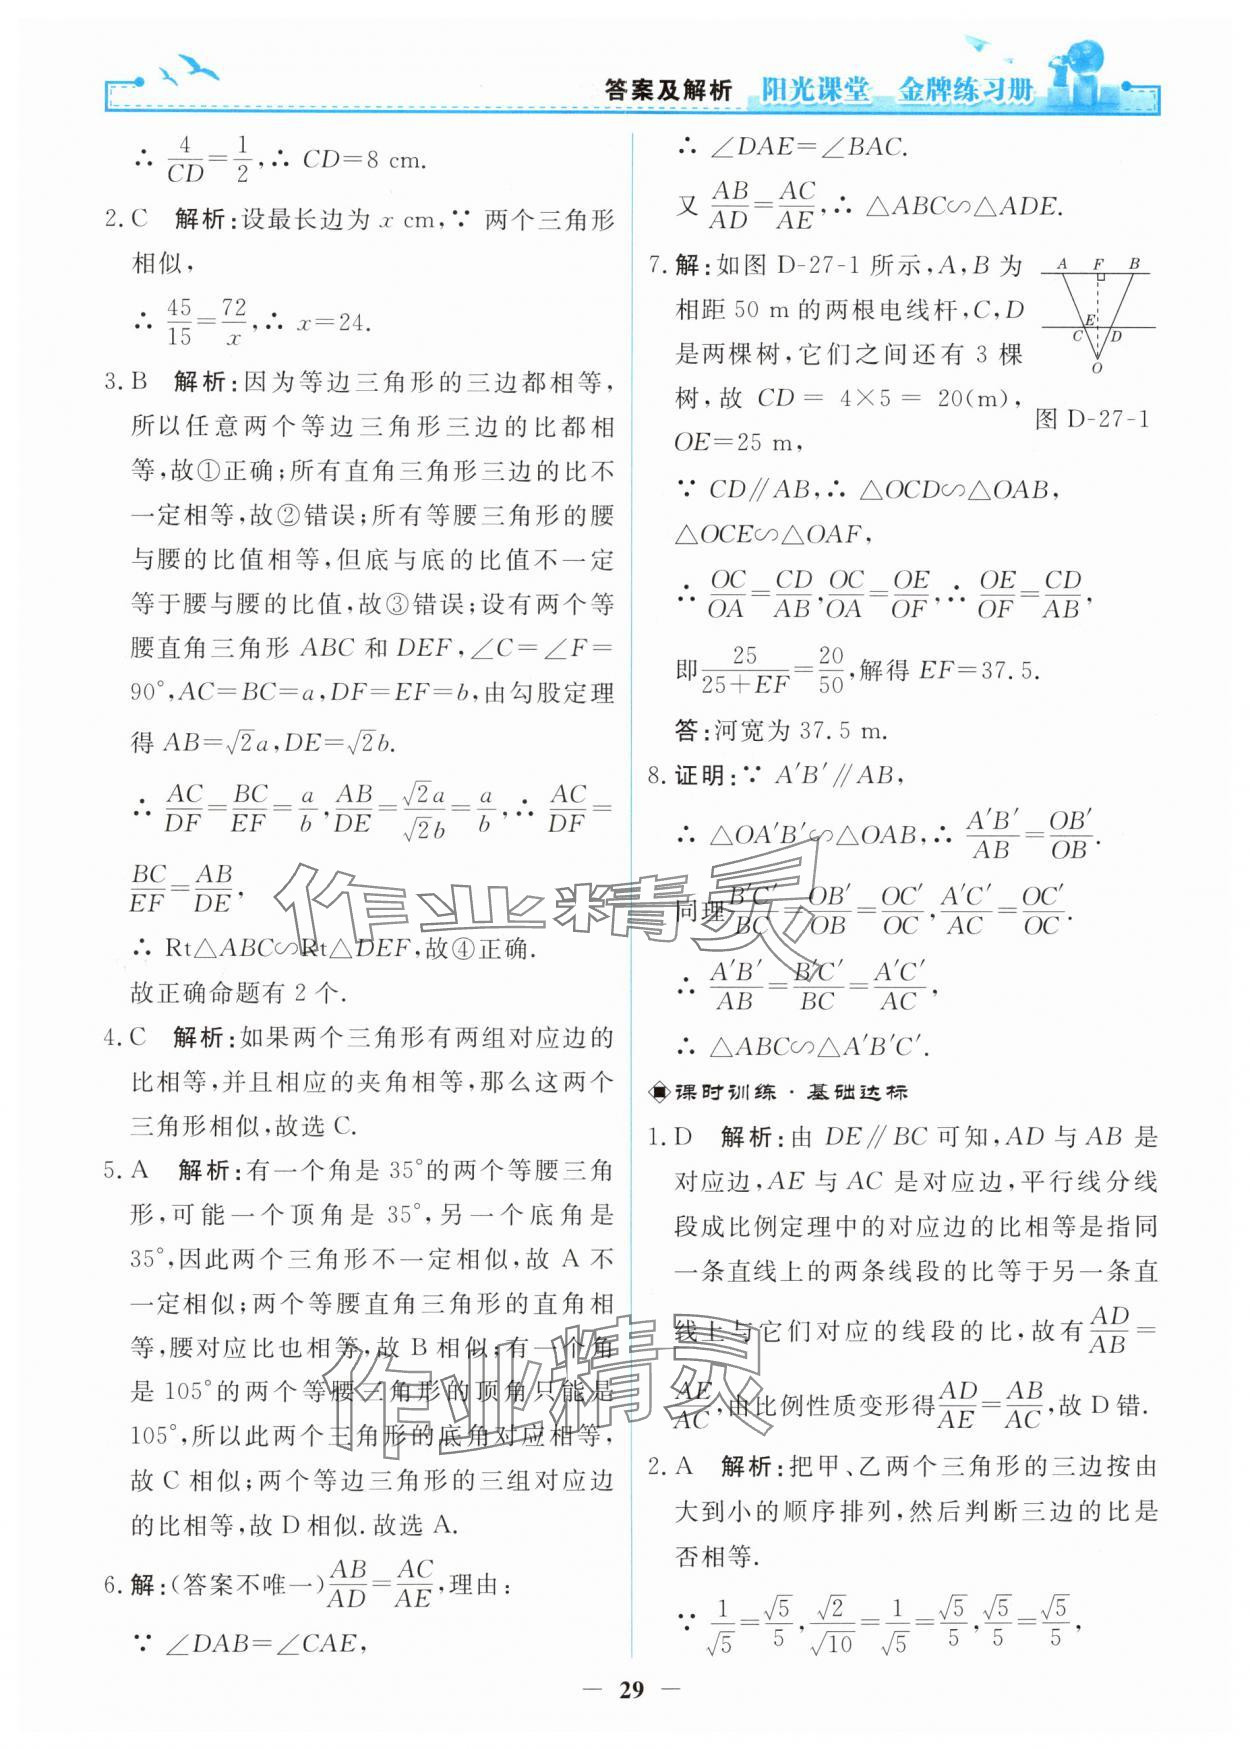 答案及解析 阳光课堂 金牌练习册
∴ 4/CD=1/2,∴ CD=8 cm.
2.C 解析:设最长边为 x cm,∵ 两个三角形
相似,
∴ 45/15=72/x,∴ x=24.
3.B 解析:因为等边三角形的三边都相等,
所以任意两个等边三角形三边的比都相
等,故①正确;所有直角三角形三边的比不
一定相等,故②错误;所有等腰三角形的腰
与腰的比值相等,但底与底的比值不一定
等于腰与腰的比值,故③错误;设有两个等
腰直角三角形 ABC 和 DEF,∠C=∠F=
90°,AC=BC=a,DF=EF=b,由勾股定理
得 AB=√2a,DE=√2b.
∴ AC/DF=BC/EF=a/b,AB/DE=√2a/√2b=a/b,∴ AC/DF=
BC/EF=AB/DE,
∴ Rt△ABC∽Rt△DEF,故④正确.
故正确命题有 2 个.
4.C 解析:如果两个三角形有两组对应边的
比相等,并且相应的夹角相等,那么这两个
三角形相似,故选 C.
5.A 解析:有一个角是 35°的两个等腰三角
形,可能一个顶角是 35°,另一个底角是
35°,因此两个三角形不一定相似,故 A 不
一定相似;两个等腰直角三角形的直角相
等,腰对应比也相等,故 B 相似;有一个角
是 105°的两个等腰三角形的顶角只能是
105°,所以此两个三角形的底角对应相等,
故 C 相似;两个等边三角形的三组对应边
的比相等,故 D 相似.故选 A.
6.解:(答案不唯一)AB/AD=AC/AE,理由:
∵ ∠DAB=∠CAE,
∴ ∠DAE=∠BAC.
又 AB/AD=AC/AE,∴ △ABC∽△ADE.
7.解:如图 D-27-1 所示,A,B 为
相距 50 m 的两根电线杆,C,D
是两棵树,它们之间还有 3 棵
树,故 CD = 4×5 = 20(m),
OE=25 m,
A F B
E
C D
O
图 D-27-1
∵ CD∥AB,∴ △OCD∽△OAB,
△OCE∽△OAF,
∴ OC/OA=CD/AB,OC/OA=OE/OF,∴ OE/OF=CD/AB,
即25/25+EF=20/50,解得 EF=37.5.
答:河宽为 37.5 m.
8.证明:∵ A′B′∥AB,
∴ △OA′B′∽△OAB,∴ A′B′/AB=OB′/OB.
同理B′C′/BC=OB′/OB=OC′/OC,A′C′/AC=OC′/OC.
∴ A′B′/AB=B′C′/BC=A′C′/AC,
∴ △ABC∽△A′B′C′.
课时训练·基础达标
1.D 解析:由 DE∥BC 可知,AD 与 AB 是
对应边,AE 与 AC 是对应边,平行线分线
段成比例定理中的对应边的比相等是指同
一条直线上的两条线段的比等于另一条直
线上与它们对应的线段的比,故有AD/AB=
AE/AC,由比例性质变形得AD/AE=AB/AC,故 D 错.
2.A 解析:把甲、乙两个三角形的三边按由
大到小的顺序排列,然后判断三边的比是
否相等.
∵ 1/√5=√5/5,√2/√10=1/√5=√5/5,√5/5=√5/5,
作业精灵
作业精灵
— 29 —